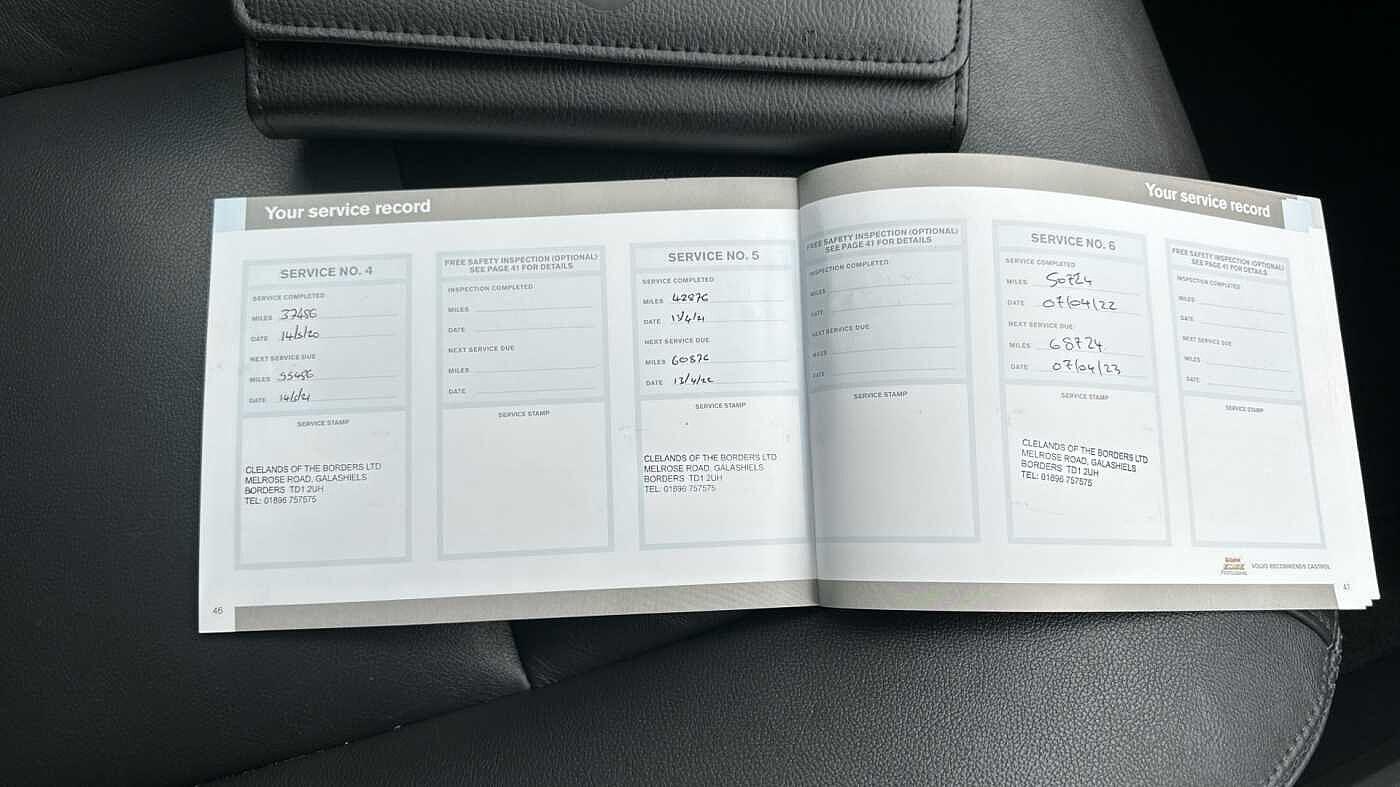 Your service record
SERVICE NO. 4
SERVICE COMPLETED
MILES 37486
DATE 14/5/20
NEXT SERVICE DUE
MILES 55486
DATE 14/5/21
SERVICE STAMP
CLELANDS OF THE BORDERS LTD
MELROSE ROAD, GALASHIELS
BORDERS TD1 2UH
TEL: 01896 757575
FREE SAFETY INSPECTION (OPTIONAL)
SEE PAGE 41 FOR DETAILS
INSPECTION COMPLETED
MILES
DATE
NEXT SERVICE DUE
MILES
DATE
SERVICE STAMP
SERVICE NO. 5
SERVICE COMPLETED
MILES 42876
DATE 13/4/21
NEXT SERVICE DUE
MILES 60876
DATE 13/4/22
SERVICE STAMP
CLELANDS OF THE BORDERS LTD
MELROSE ROAD, GALASHIELS
BORDERS TD1 2UH
TEL: 01896 757575
46
Your service record
FREE SAFETY INSPECTION (OPTIONAL)
SEE PAGE 41 FOR DETAILS
INSPECTION COMPLETED
MILES
DATE
NEXT SERVICE DUE
MILES
DATE
SERVICE STAMP
SERVICE NO. 6
SERVICE COMPLETED
MILES 50724
DATE 07/04/22
NEXT SERVICE DUE
MILES 68724
DATE 07/04/23
SERVICE STAMP
CLELANDS OF THE BORDERS LTD
MELROSE ROAD, GALASHIELS
BORDERS TD1 2UH
TEL: 01896 757575
FREE SAFETY INSPECTION (OPTIONAL)
SEE PAGE 41 FOR DETAILS
INSPECTION COMPLETED
MILES
DATE
NEXT SERVICE DUE
MILES
DATE
SERVICE STAMP
VOLVO RECOMMENDS CASTROL
47